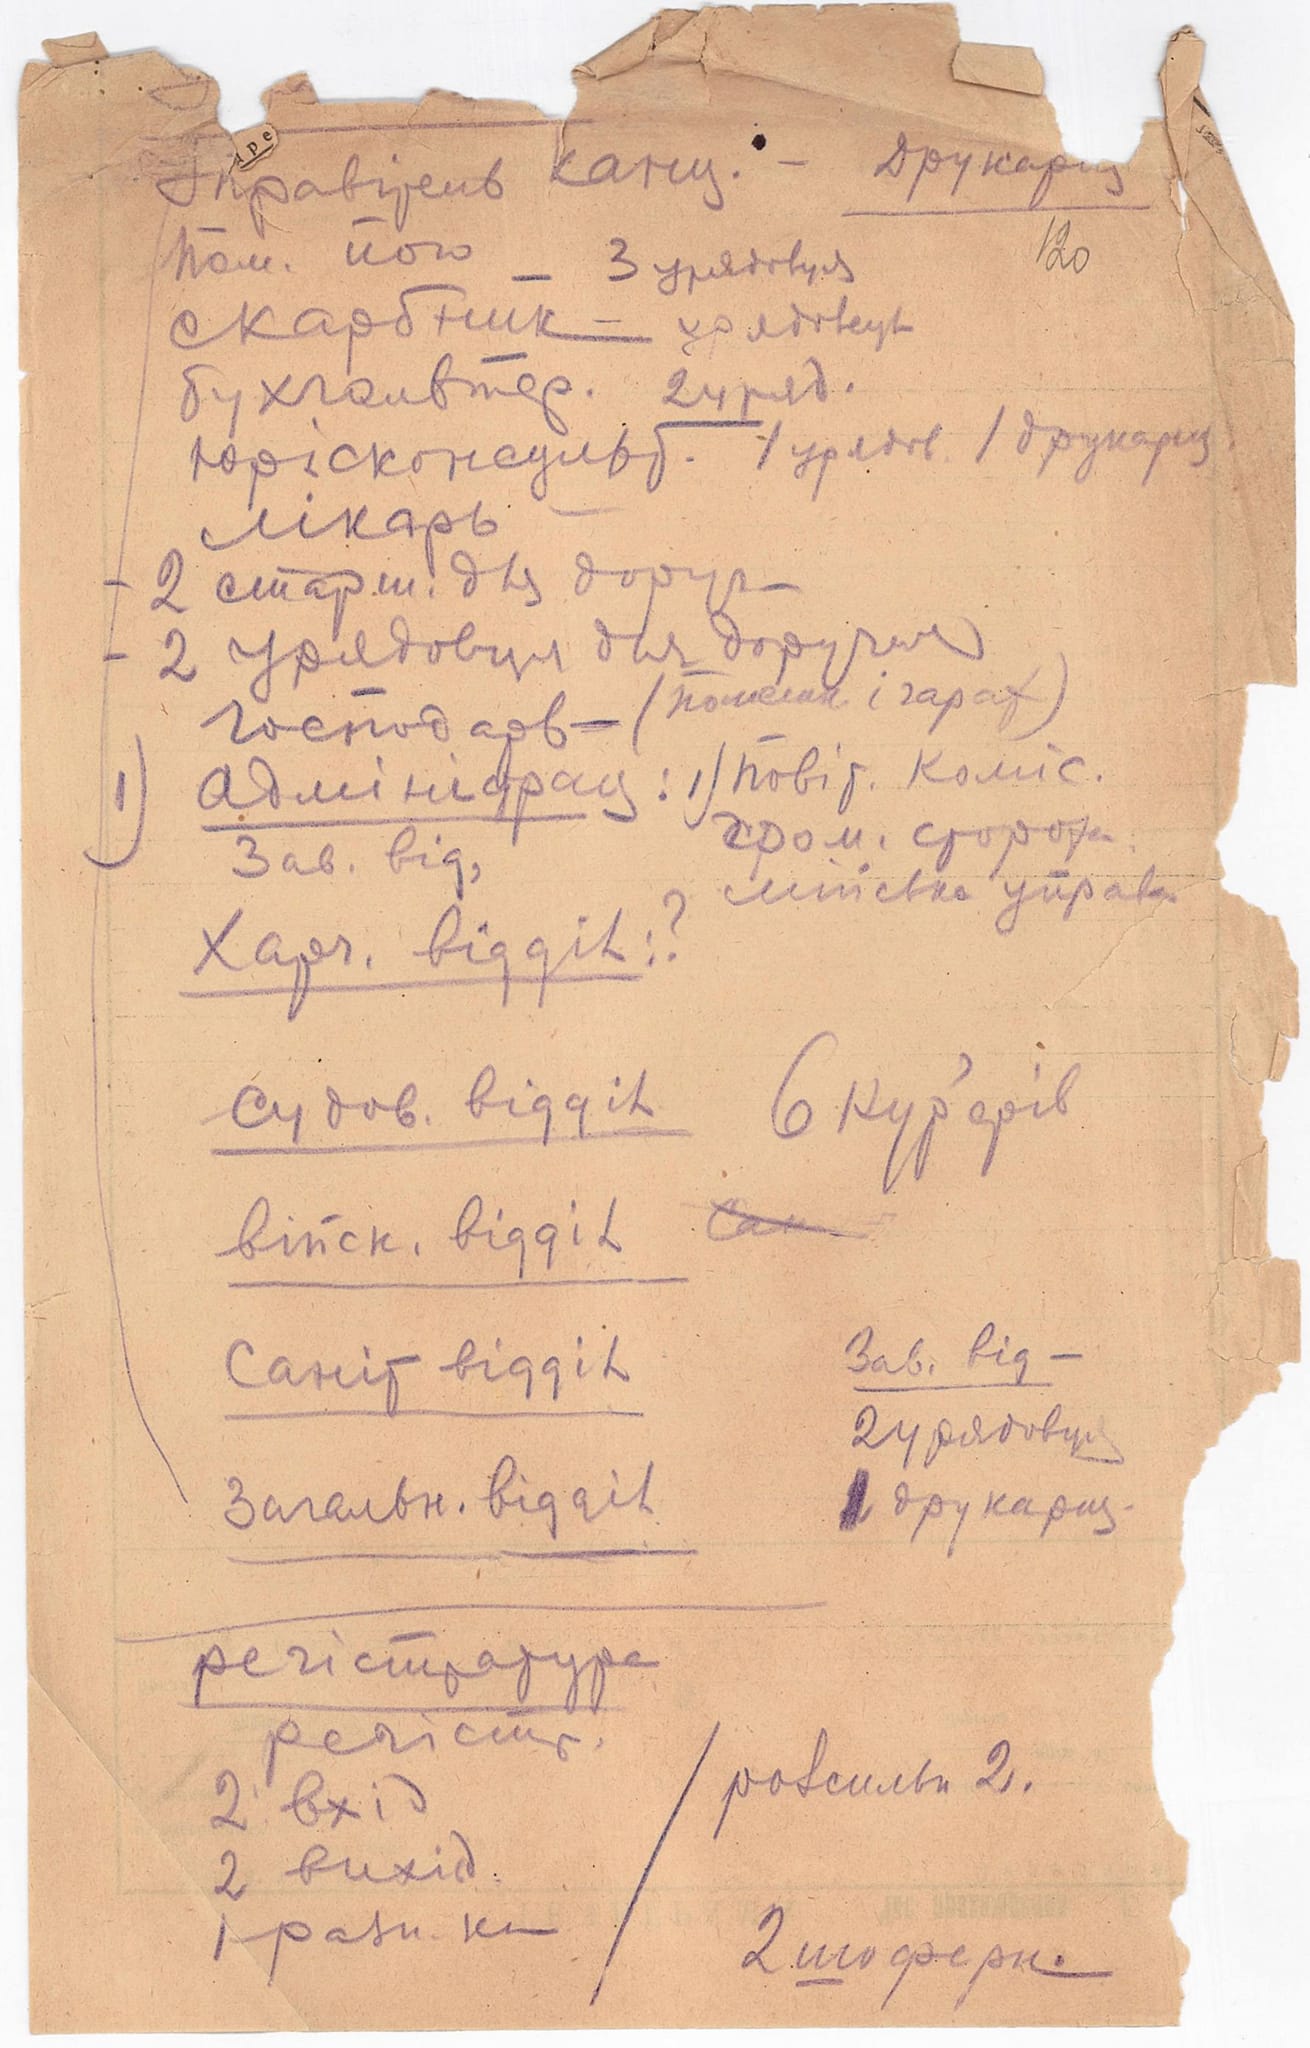 Управітель канц. – Друкарщ
120
Пом. його – 3 урядовця
скарбник – урядовець
бухгальтер. 2 уряд.
юрісконсульт. 1 урядов. 1 друкарщ.
лікарь –
– 2 старш. для доруч –
– 2 урядовця для доручень
господарь – (помешк. і гараж)
1) Адміністрац: 1) Повіт. Коміс.
Зав. від, гром. сторожа.
мійська управа
Харч. відділ: ?
Судов. відділ 6 кур'єрів
військ. відділ Сан
Саніт відділ Зав. від –
2 урядовця
Загальн. відділ 1 друкарщ.
регістратура
регістр.
2 вхід розсильн 2.
2 вихід.
1 разн. кн 2 шофери.